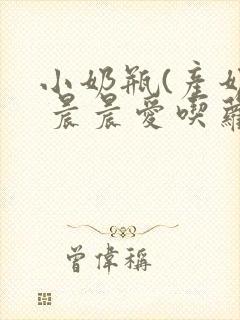 小奶瓶(產奶
晨晨愛喫蘿
曾偉稱